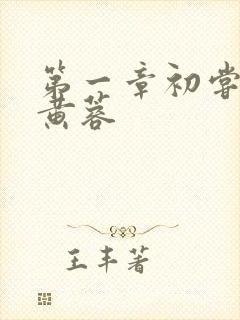 第一章初尝
黄蓉
王丰著